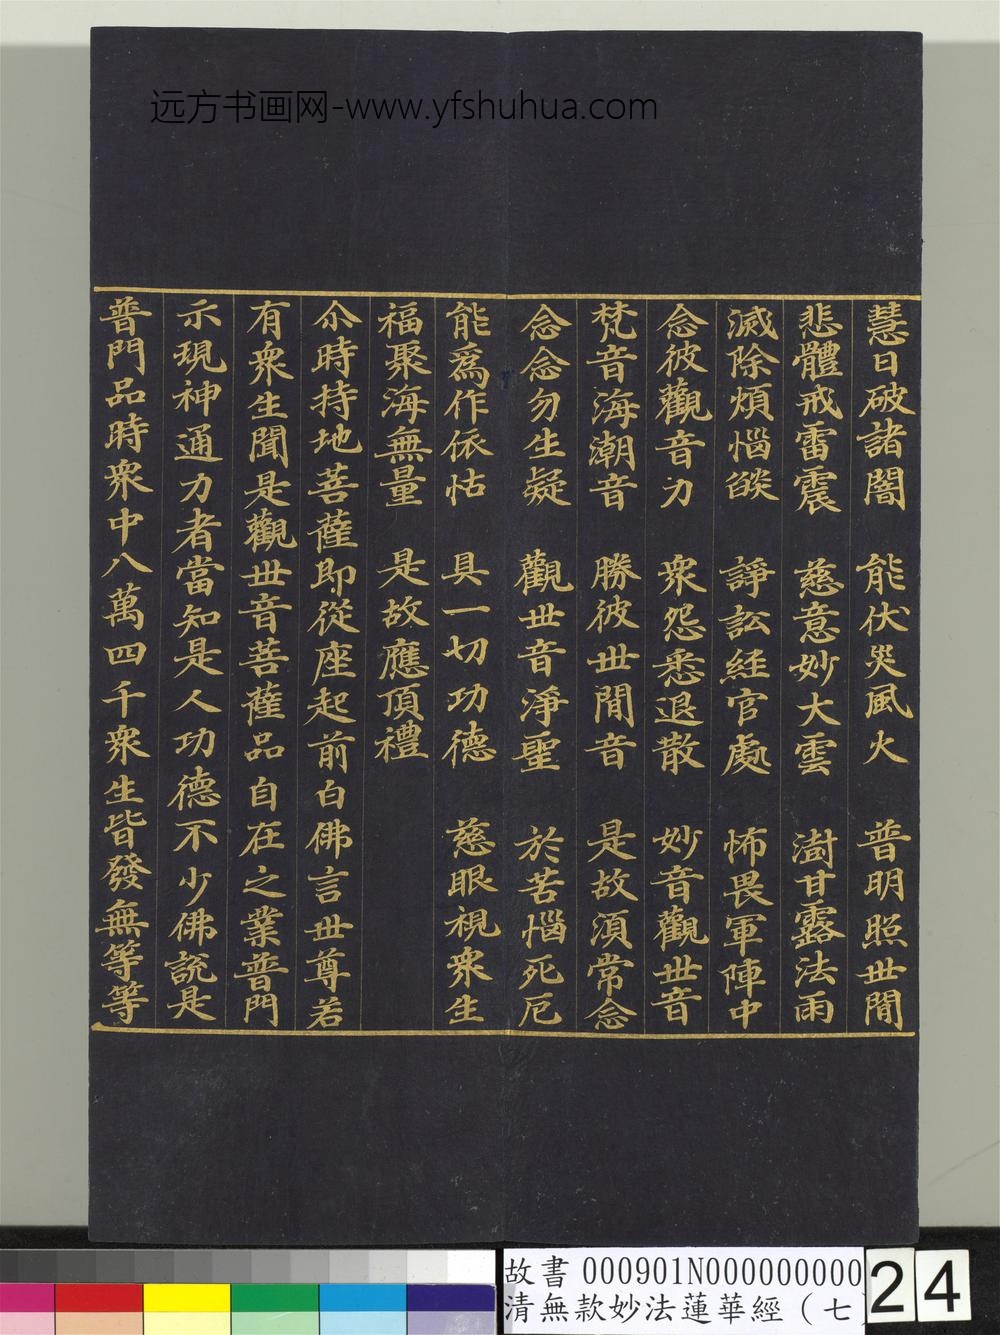 远方书画网-www.yfshuhua.com
慧日破諸闇 能伏災風火 普明照世間
悲體戒雷震 慈意妙大雲 澍甘露法雨
滅除煩惱燄 諍訟經官處 怖畏軍陣中
念彼觀音力 衆怨悉退散 妙音觀世音
梵音海潮音 勝彼世間音 是故須常念
念念勿生疑 觀世音淨聖 於苦惱死厄
能爲作依怙 具一切功德 慈眼視衆生
福聚海無量 是故應頂禮
尒時持地菩薩即從座起前白佛言世尊若
有衆生聞是觀世音菩薩品自在之業普門
示現神通力者當知是人功德不少佛說是
普門品時衆中八萬四千衆生皆發無等等
故書 000901N000000000
清無款妙法蓮華經（七）
24